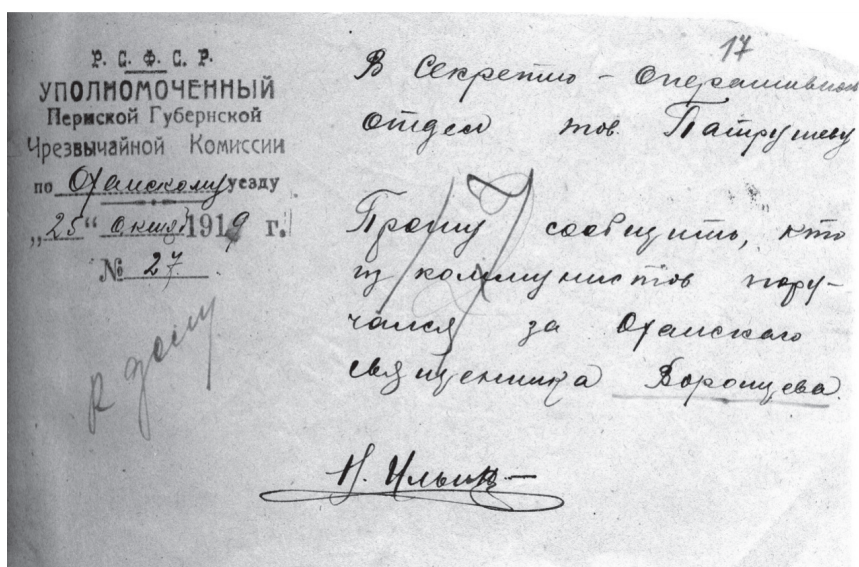 17
Р. С. Ф. С. Р.
УПОЛНОМОЧЕННЫЙ
Пермской Губернской
Чрезвычайной Комиссии
по Оханскому уезду
„25“ октяб 1919 г.
№ 27.
к делу
В Секретно – Оперативный
отдел тов. Патрушеву
Прошу сообщить, кто
из коммунистов пору-
чался за Оханского
священника Воронцева.
Н. Ильин